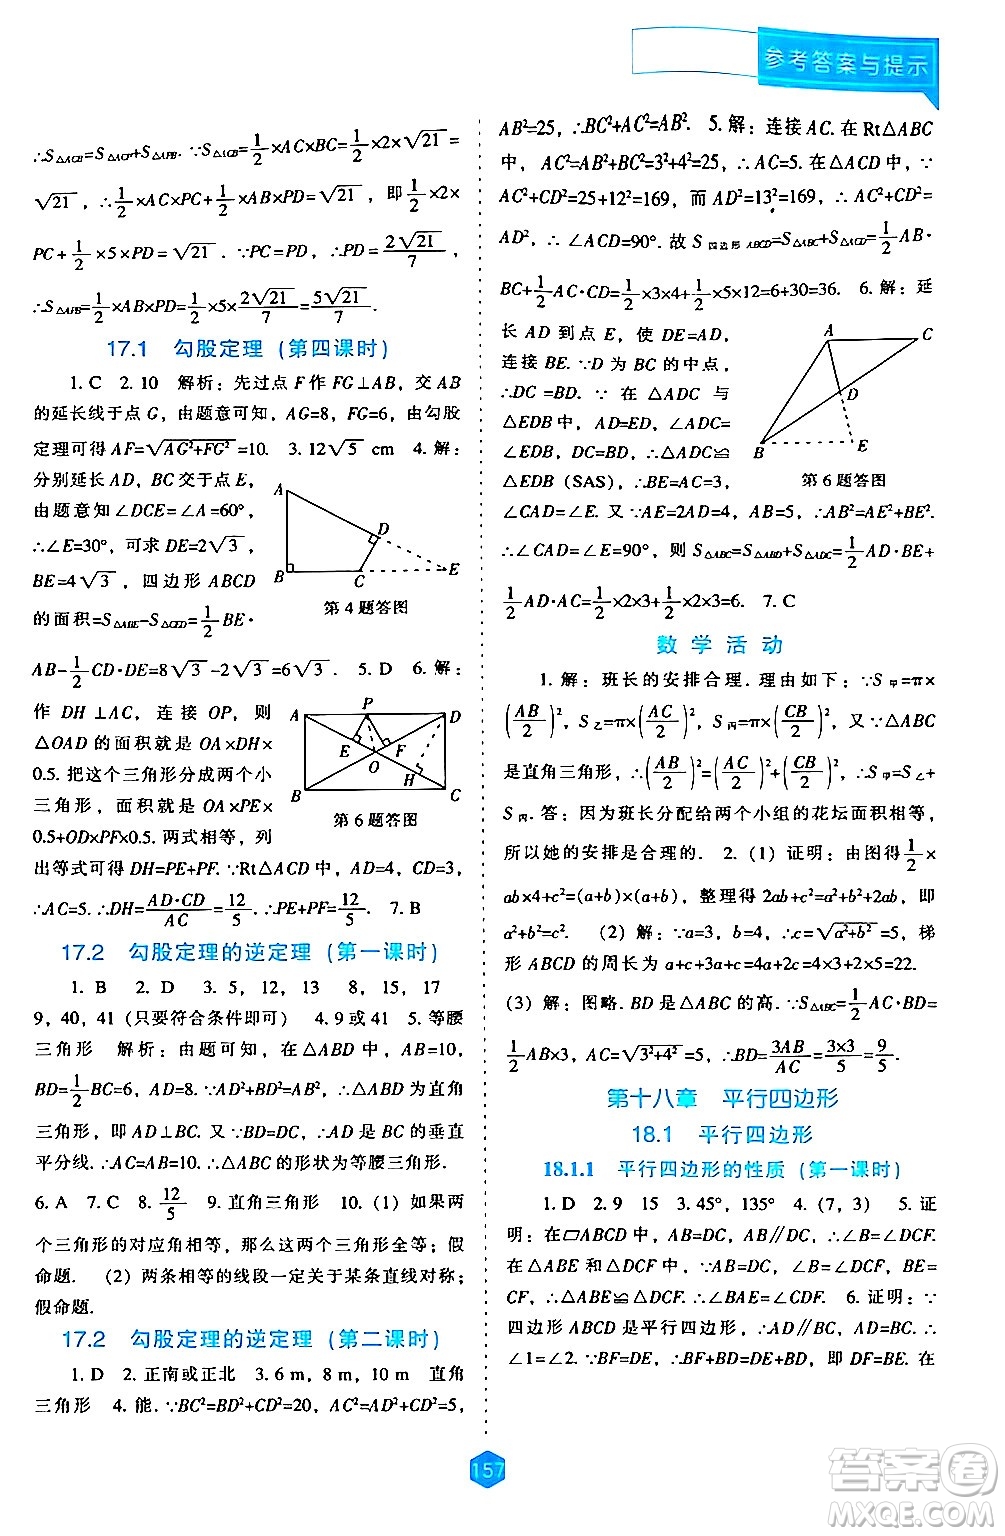 参考答案与提示
∴S△ACB=S△ACP+S△APB. ∵S△ACB=1/2×AC×BC=1/2×2×√21=
√21, ∴1/2×AC×PC+1/2×AB×PD=√21, 即1/2×2×
PC+1/2×5×PD=√21. ∵PC=PD, ∴PD=2√21/7,
∴S△APB=1/2×AB×PD=1/2×5×2√21/7=5√21/7.
17.1 勾股定理（第四课时）
1. C 2. 10 解析：先过点 F 作 FG⊥AB, 交 AB
的延长线于点 G, 由题意可知, AG=8, FG=6, 由勾股
定理可得 AF=√AG²+FG²=10. 3. 12√5 cm 4. 解：
分别延长 AD, BC 交于点 E,
由题意知∠DCE=∠A=60°,
∴∠E=30°, 可求 DE=2√3,
BE=4√3, 四边形 ABCD
的面积=S△ABE-S△CED=1/2BE·
A
D
B
C
E
第 4 题答图
AB-1/2CD·DE=8√3-2√3=6√3. 5. D 6. 解：
作 DH⊥AC, 连接 OP, 则
△OAD 的面积就是 OA×DH×
0.5. 把这个三角形分成两个小
三角形, 面积就是 OA×PE×
0.5+OD×PF×0.5. 两式相等, 列
A
P
D
E
F
O
H
B
C
第 6 题答图
出等式可得 DH=PE+PF. ∵Rt△ACD 中, AD=4, CD=3,
∴AC=5. ∴DH=AD·CD/AC=12/5. ∴PE+PF=12/5. 7. B
17.2 勾股定理的逆定理（第一课时）
1. B 2. D 3. 5, 12, 13 8, 15, 17
9, 40, 41 (只要符合条件即可) 4. 9 或 41 5. 等腰
三角形 解析：由题可知, 在△ABD 中, AB=10,
BD=1/2BC=6, AD=8. ∵AB²=AD²+BD², ∴△ABD 为直角
三角形, 即 AD⊥BC. 又∵BD=CD, ∴AD 是 BC 的垂直
平分线. ∴AB=AC. ∴△ABC 的形状为等腰三角形.
6. A 7. C 8. 12/5 9. 直角三角形 10. (1) 如果两
个三角形的对应角相等, 那么这两个三角形全等；假
命题. (2) 两条相等的线段一定关于某条直线对称；
假命题.
17.2 勾股定理的逆定理（第二课时）
1. D 2. 正南或正北 3. 6 m, 8 m, 10 m 直角
三角形 4. 能. ∵BC²=BD²+CD²=20, AC²=AD²+CD²=5,
AB²=25, ∴BC²+AC²=AB². 5. 解：连接 AC. 在 Rt△ABC
中, AC²=AB²+BC²=3²+4²=25, ∴AC=5. 在△ACD 中, ∵
AC²+CD²=25+12²=169, 而 AD²=13²=169, ∴AC²+CD²=
AD², ∴∠ACD=90°. 故 S四边形ABCD=S△ABC+S△ACD=1/2AB·
BC+1/2AC·CD=1/2×3×4+1/2×5×12=6+30=36. 6. 解：延
长 AD 到点 E, 使 DE=AD,
连接 BE. ∵D 为 BC 的中点,
∴DC=BD. ∵在△ADC 与
△EDB 中, AD=ED, ∠ADC=
∠EDB, BD=DC, ∴△ADC≌
△EDB (SAS), ∴BE=AC=3,
A
C
D
B
E
第 6 题答图
∠CAD=∠E. 又∵AE=2AD=4, AB=5, ∴AB²=AE²+BE².
∴∠CAD=∠E=90°, 则 S△ABC=S△ABD+S△ADC=1/2AD·BE+
1/2AD·AC=1/2×2×3+1/2×2×3=6. 7. C
数学活动
1. 解：班长的安排合理. 理由如下：∵S甲=π×
(AB/2)², S乙=π×(AC/2)², S丙=π×(CB/2)², 又∵△ABC
是直角三角形, ∴(AB/2)²=(AC/2)²+(CB/2)². ∴S甲=S乙+
S丙. 答：因为班长分配给两个小组的花坛面积相等,
所以她的安排是合理的. 2. (1) 证明：由图得1/2×
ab×4+c²=(a+b)×(a+b), 整理得 2ab+c²=a²+b²+2ab, 即
a²+b²=c². (2) 解：∵a=3, b=4, ∴c=√a²+b²=5, 梯
形 ABCD 的周长为 a+c+3a+c=4a+2c=4×3+2×5=22.
(3) 解：图略. BD 是△ABC 的高. ∵S△ABC=1/2AC·BD=
1/2AB×3, AC=√3²+4²=5, ∴BD=3AB/AC=3×3/5=9/5.
第十八章 平行四边形
18.1 平行四边形
18.1.1 平行四边形的性质（第一课时）
1. D 2. 9 15 3. 45°, 135° 4. (7, 3) 5. 证
明：在▱ABCD 中, ∵AB∥DC, AB=DC, ∴∠B=∠DCF.
在△ABE 和△DCF 中, ∵AB=DC, ∠B=∠DCF, BE=
CF, ∴△ABE≌△DCF, ∴∠BAE=∠CDF. 6. 证明：∵
四边形 ABCD 是平行四边形, ∴AD∥BC, AD=BC. ∴
∠1=∠2. ∵BE∥DF, ∴∠3=∠4. ∵BE=DF, ∴在
157
答案圈
MXQE.COM